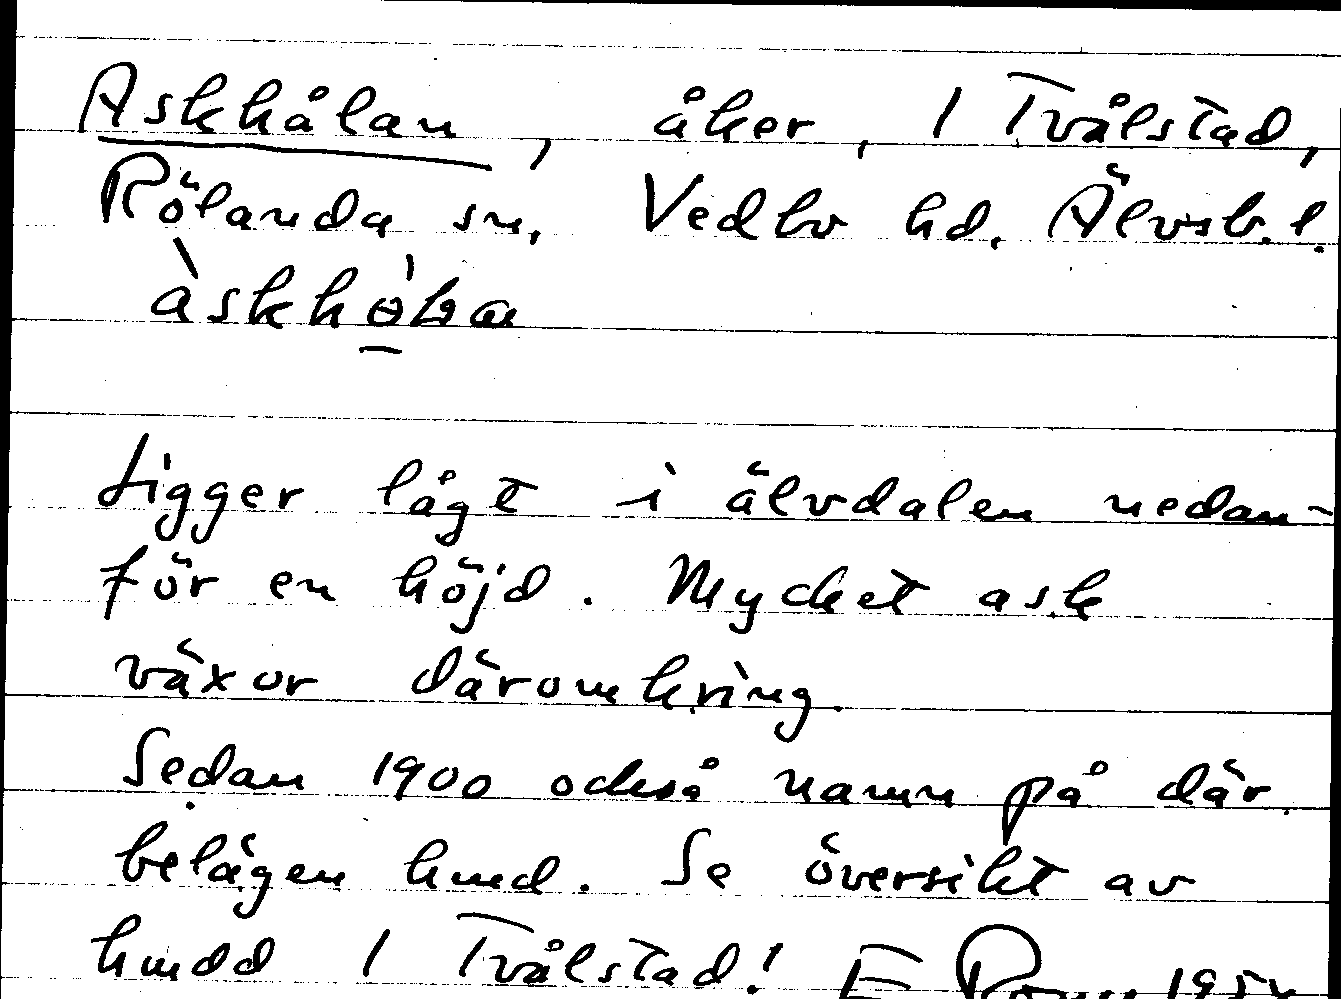 Askhålan, åker, 1 Tvålstad,
Rölanda sn, Vedbo hd. Älvsb. l.
àskhò̱la
Ligger lågt i älvdalen nedan-
för en höjd. Mycket ask
växer däromkring.
Sedan 1900 också namn på där
belägen hmd. Se översikt av
hmdd 1 Tvålstad! E